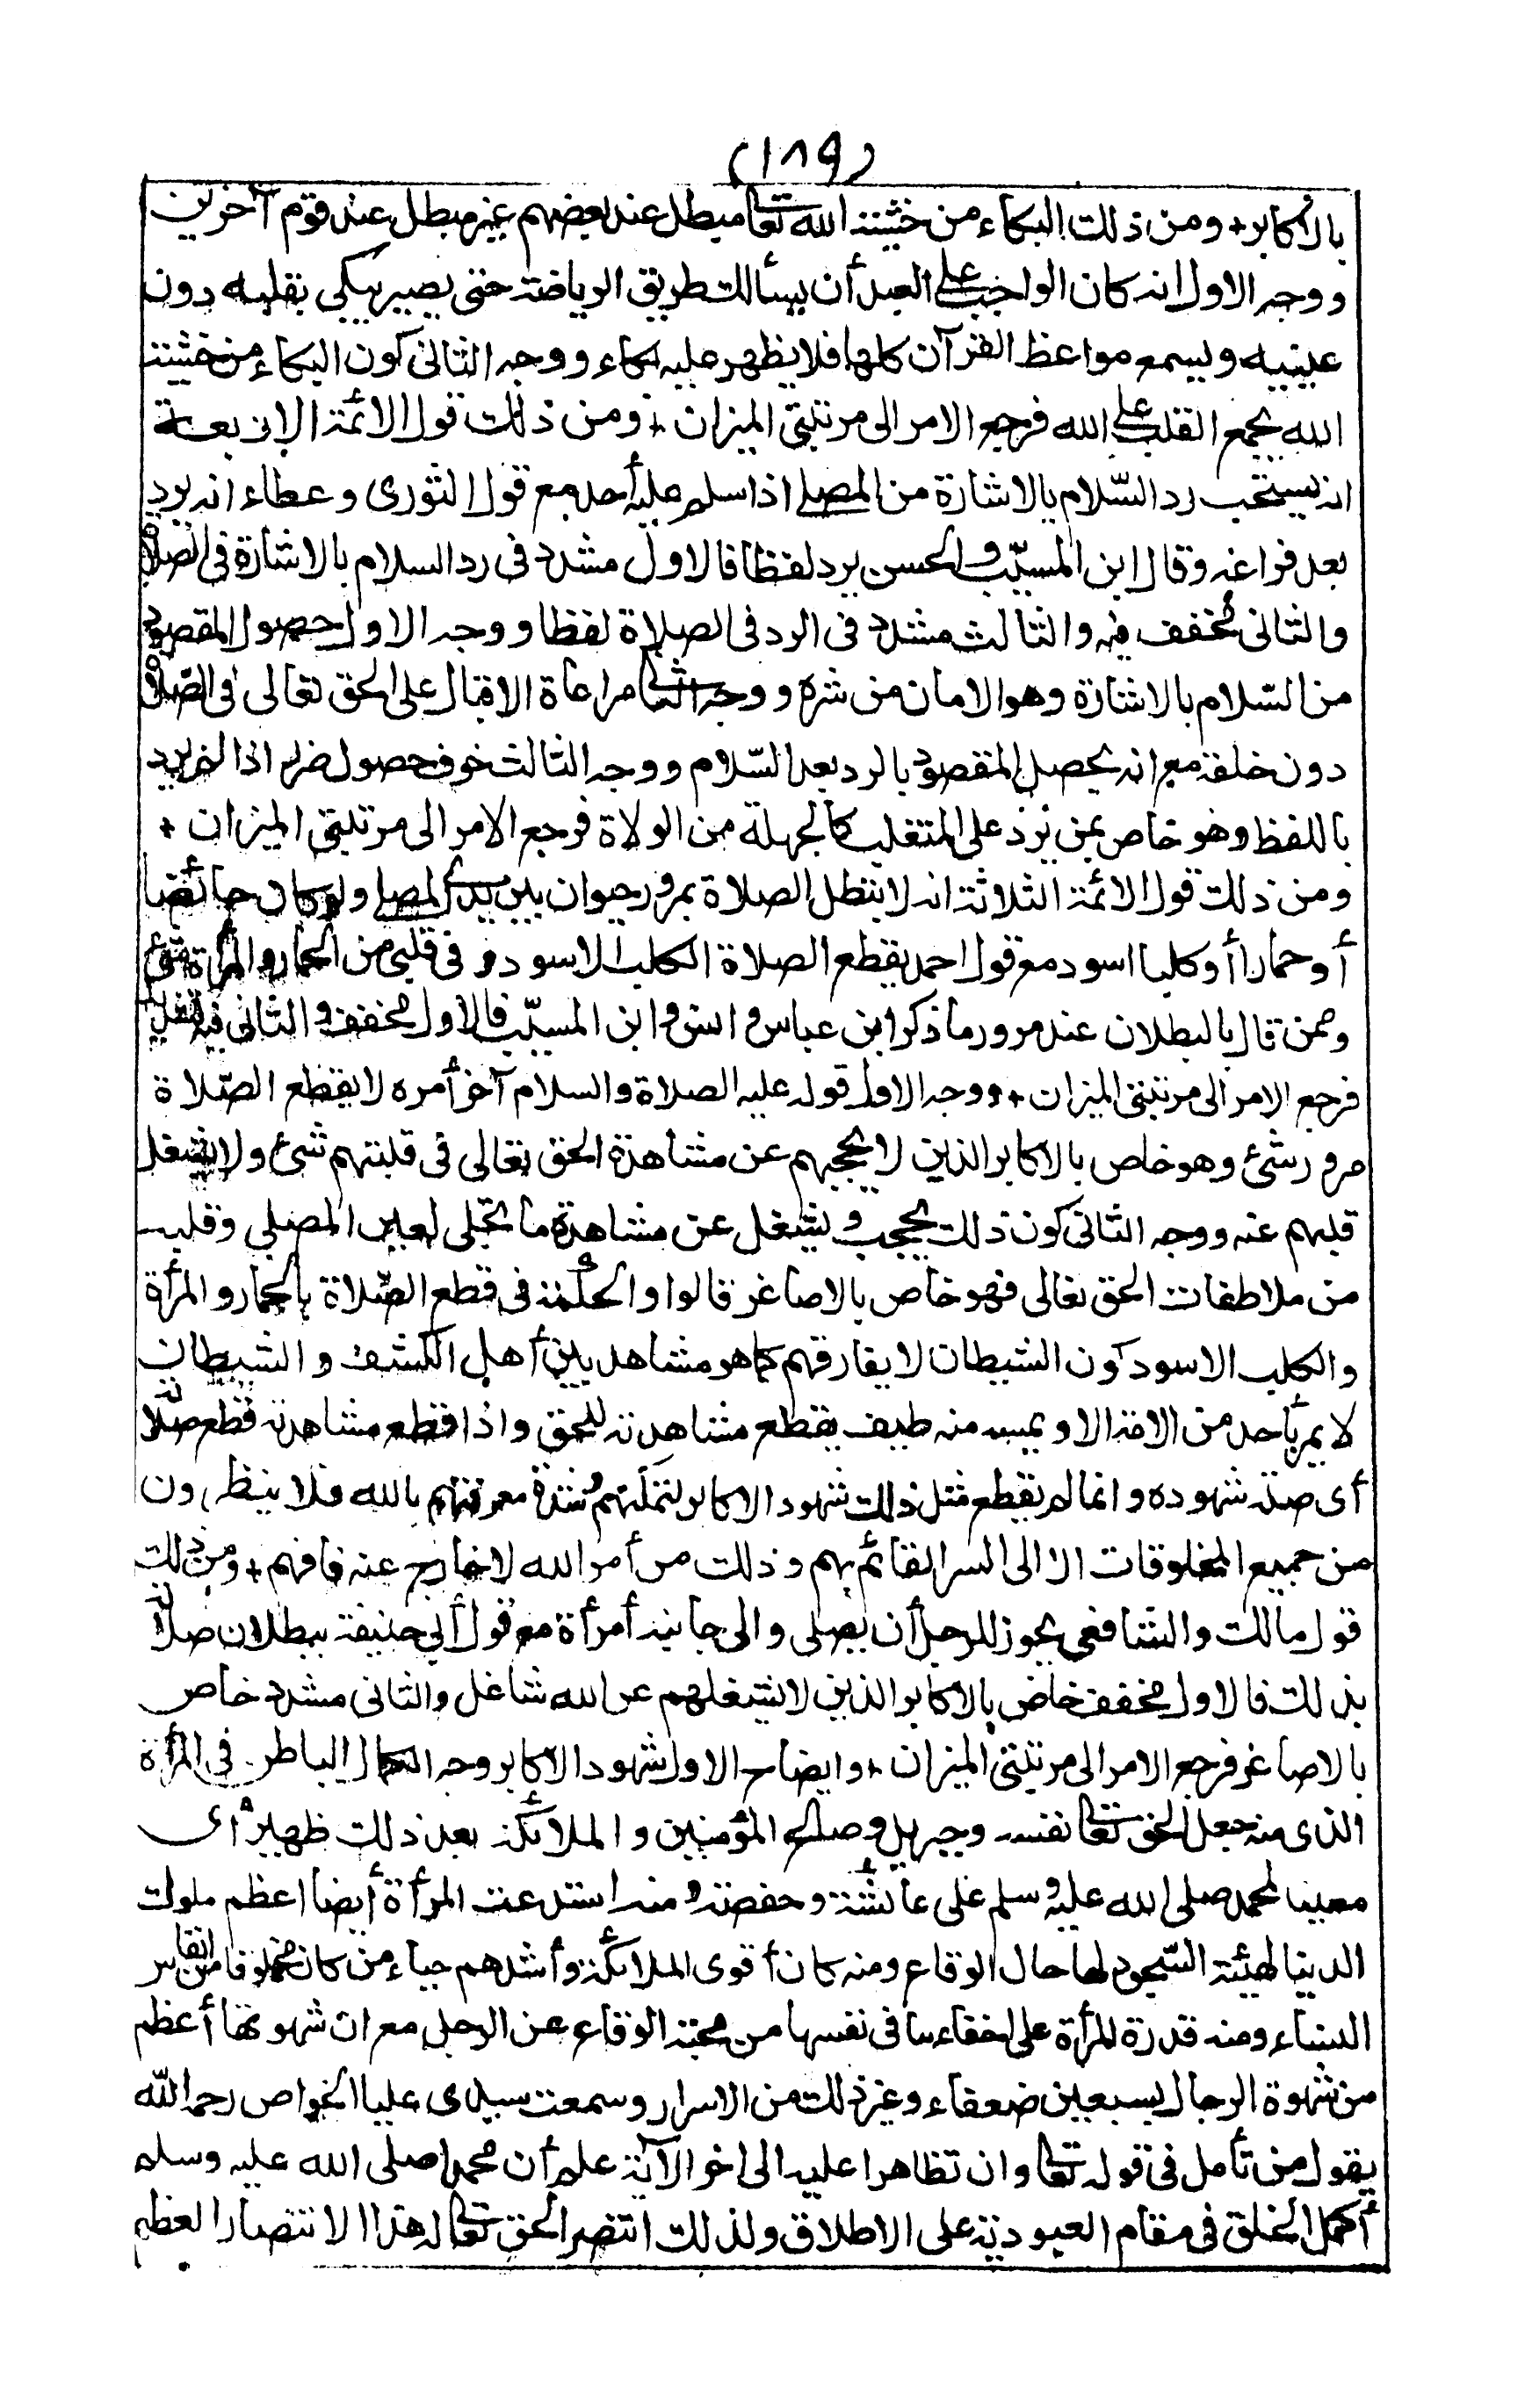 (١٨٩)
بالاكابر + ومن ذلك البكاء من خشية الله تعالى مبطل عند بعضهم غير مبطل عند قوم آخرين
ووجه الاول انه كان الواجب على العبد أن يسألك طريق الرياضة حتى يصير يبكى بقلبه دون
عينيه ويسمع مواعظ القرآن كلها فلا يظهر عليه بكاء ووجه الثانى كون البكاء من خشية
الله يجمع القلب على الله فرجع الامر الى مرتبتى الميزان + ومن ذلك قول الائمة الاربعة
انه يستحب رد السّلام بالاشارة من المصلى اذا سلم عليه أحد مع قول الثورى وعطاء انه يرد
بعد فراغه وقال ابن المسيّب والحسن يرد لفظا فالاول مشدد فى رد السلام بالاشارة فى الصلاة
والثانى مخفف فيه والثالث مشدد فى الرد فى الصلاة لفظا ووجه الاول حصول المقصود
من السّلام بالاشارة وهو الامان من شره ووجه الثانى مراعاة الاقبال على الحق تعالى فى الصّلاة
دون خلقه مع انه يحصل المقصود بالرد بعد السّلام ووجه الثالث خوف حصول ضرر اذا لم يرد
باللفظ وهو خاص بمن يرد على المتغلب كالجهلة من الولاة فرجع الامر الى مرتبتى الميزان +
ومن ذلك قول الائمة الثلاثة انه لا تبطل الصلاة بمرور حيوان بين يدى المصلى ولو كان حائضا
أو حمارا أو كلبا اسود مع قول احمد يقطع الصلاة الكلب الاسود وفى قلبى من الحمار والمرأة شئ
وممن قال بالبطلان عند مرور ما ذكر ابن عباس وانس وابن المسيّب فالاول مخفف والثانى فيه تشديد
فرجع الامر الى مرتبتى الميزان + ووجه الاول قوله عليه الصلاة والسلام آخر أمره لا يقطع الصّلاة
مرور شئ وهو خاص بالاكابر الذين لا يحجبهم عن مشاهدة الحق تعالى فى قبلتهم شئ ولا يشغل
قلبهم عنه ووجه الثانى كون ذلك يحجب ويشغل عن مشاهدة ما تجلى لعين المصلى وقلبه
من ملاطفات الحق تعالى فهو خاص بالاصاغر قالوا والحكمة فى قطع الصّلاة بالحمار والمرأة
والكلب الاسود كون الشيطان لا يفارقهم كما هو مشاهد بين أهل الكشف والشيطان
لا يمر بأحد من الامة الا ويمسه منه طيف يقطع مشاهدته للحق واذا قطع مشاهدته قطع صلاته
أى صلة شهوده وانما لم يقطع مثل ذلك شهود الاكابر لتمكنهم وشدة معرفتهم بالله فلا ينظرون
من جميع المخلوقات الا الى السر القائم بهم وذلك من أمر الله لا خارج عنه فافهم + ومن ذلك
قول مالك والشافعى يجوز للرجل أن يصلى والى جانبه أمرأة مع قول أبى حنيفة ببطلان صلاته
بذلك فالاول مخفف خاص بالاكابر الذين لا يشغلهم عن الله شاغل والثانى مشدد خاص
بالاصاغر فرجع الامر الى مرتبتى الميزان + وايضاح الاول شهود الاكابر وجه الكمال الباطن فى المرأة
الذى منه جعل الحق تعالى نفسه وجبريل وصالح المؤمنين والملائكة بعد ذلك ظهير أى
معينا لمحمد صلى الله عليه وسلم على عائشة وحفصة ومنه استدعت المرأة أيضا اعظم ملوك
الدنيا لهيئة السّجود لها حال الوقاع ومنه كان أقوى الملائكة وأشدهم حياء من كان مخلوقا من انفاس
النساء ومنه قدرة المرأة على اخفاء ما فى نفسها من محبة الوقاع عن الرجل مع ان شهوتها أعظم
من شهوة الرجال بسبعين ضعفاء وغير ذلك من الاسرار وسمعت سيدى عليا الخواص رحمه الله
يقول من تأمل فى قوله تعالى وان تظاهرا عليه الى اخر الآية علم أن محمدا صلى الله عليه وسلم
أكمل الخلق فى مقام العبودية على الاطلاق ولذلك انتصر الحق تعالى له هذا الانتصار العظيم